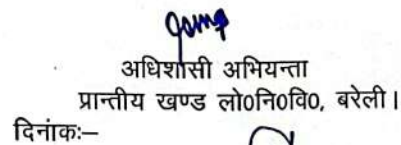 अधिशासी अभियन्ता
प्रान्तीय खण्ड लो0नि0वि0, बरेली।
दिनांकः–